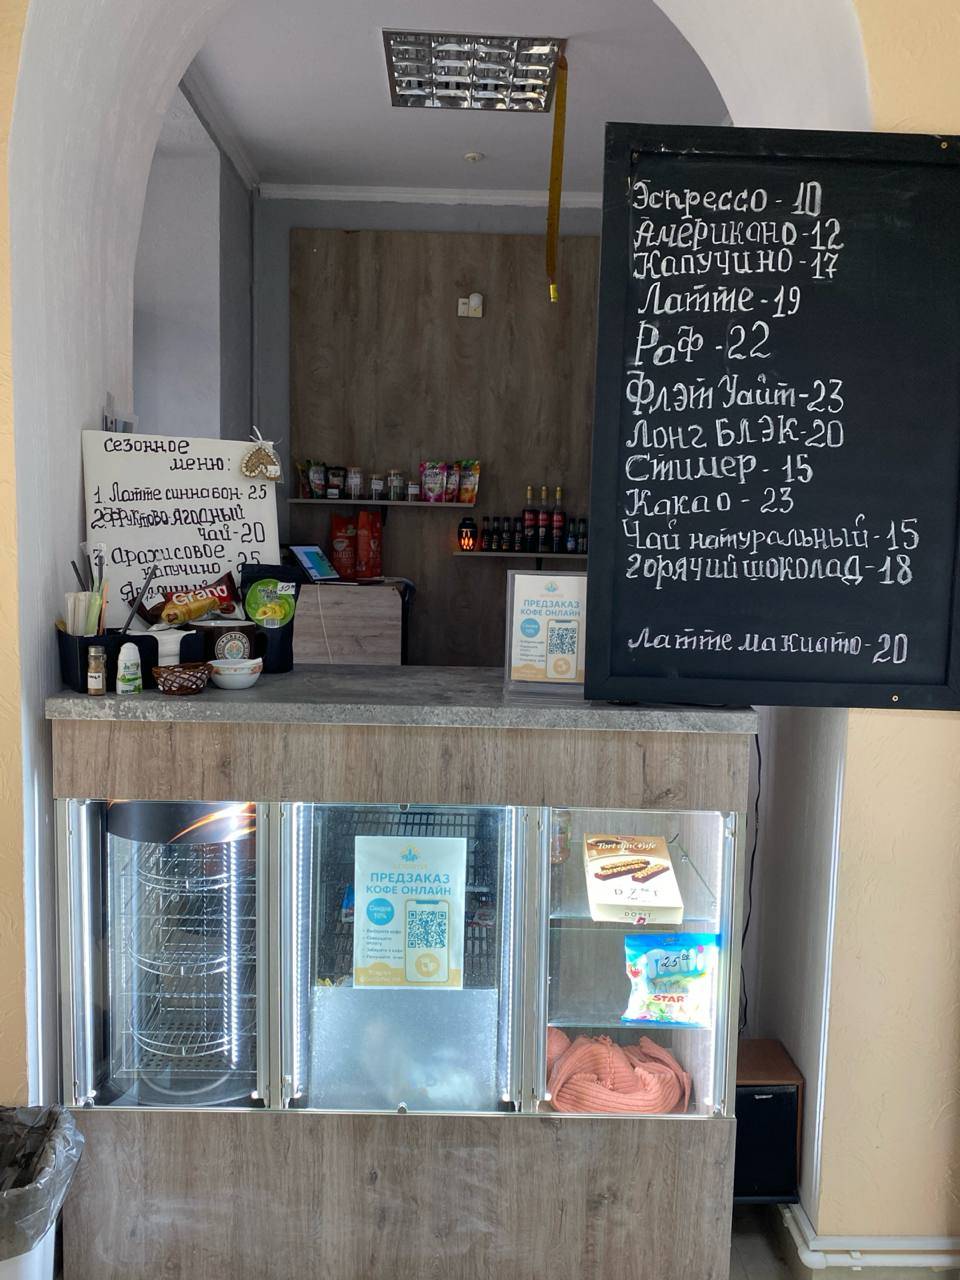 Эспрессо - 10
Американо - 12
Капучино - 17
Латте - 19
Раф - 22
Флэт Уайт - 23
Лонг Блэк - 20
Стимер - 15
Какао - 23
Чай натуральный - 15
Горячий шоколад - 18
Латте макиато - 20
Сезонное
меню:
1. Латте синнабон - 25
2. Фруктово-ягодный
чай - 20
3. Арахисовое
капучино - 25
Grand
ПРЕДЗАКАЗ
КОФЕ ОНЛАЙН
ПРЕДЗАКАЗ
КОФЕ ОНЛАЙН
Скидка
10%
Tort din Cafe
DOXIT
25
STAR